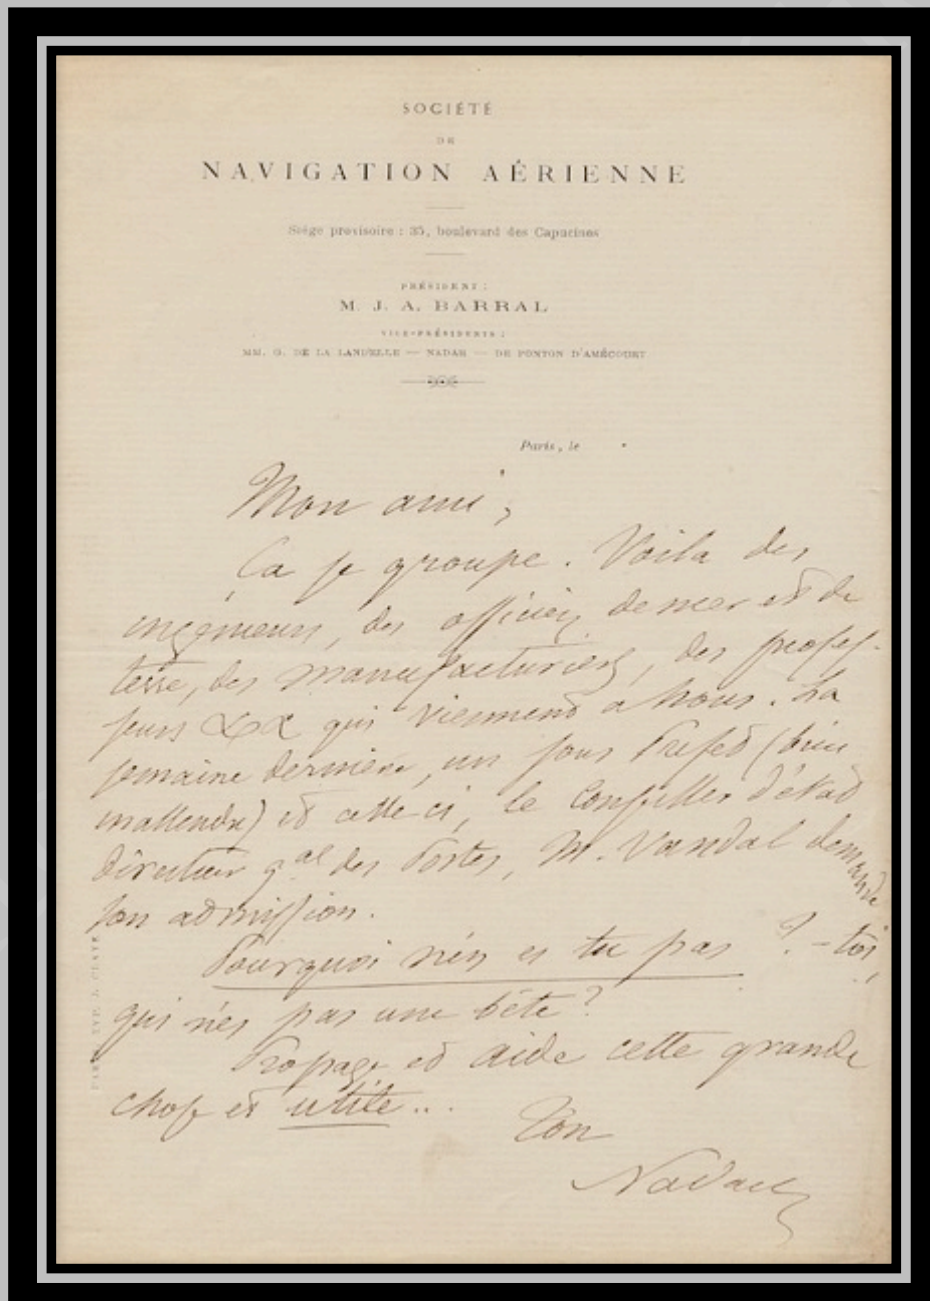 SOCIÉTÉ
DE
NAVIGATION AÉRIENNE
Siège provisoire : 35, boulevard des Capucines
PRÉSIDENT :
M. J. A. BARRAL
VICE-PRÉSIDENTS :
MM. G. DE LA LANDELLE — NADAR — DE PONTON D'AMÉCOURT
Paris, le
Mon ami,
Ça se groupe. Voila des
ingénieurs, des officiers de mer et de
terre, des manufacturiers, des profes-
seurs &x qui viennent a nous. La
semaine dernière, un sous Prefet (bien
inattendu) et celle ci, le Conseiller d'état
directeur gal des Postes, M. Vandal demande
son admission.
Pourquoi n'en es tu pas ? - toi,
qui n'es pas une bête ?
Propage et aide cette grande
chose et utile...
Ton
Nadar
PARIS. TYP. J. CLAYE